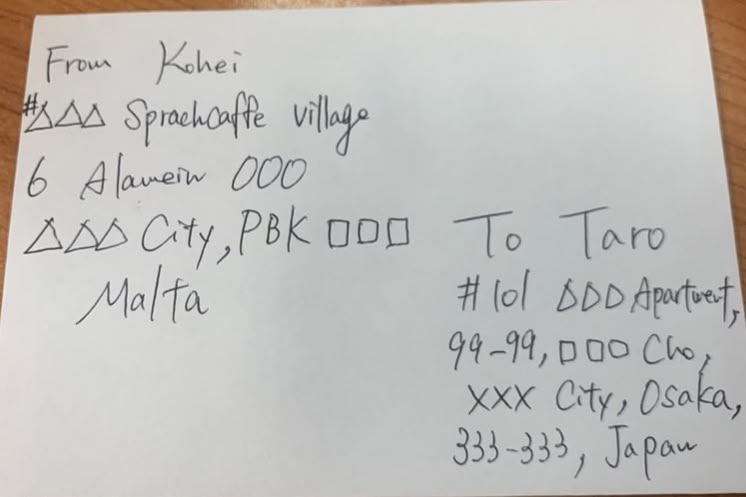 From Kohei
#△△△ Sprachcaffe village
6 Alamein OOO
△△△ City, PBK □□□
Malta
To Taro
#101 △△△ Apartment,
99-99, □□□ Cho,
XXX City, Osaka,
333-333, Japan